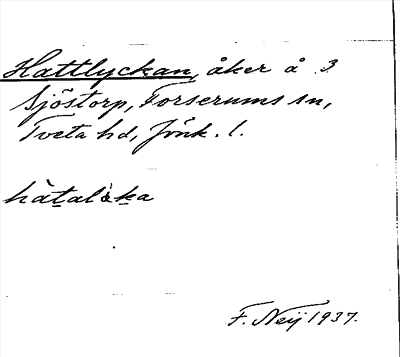 Hattlyckan, åker å 3
Sjöstorp, Forserums sn,
Tveta hd, Jönk. l.
hàtalska
F. Neij 1937.